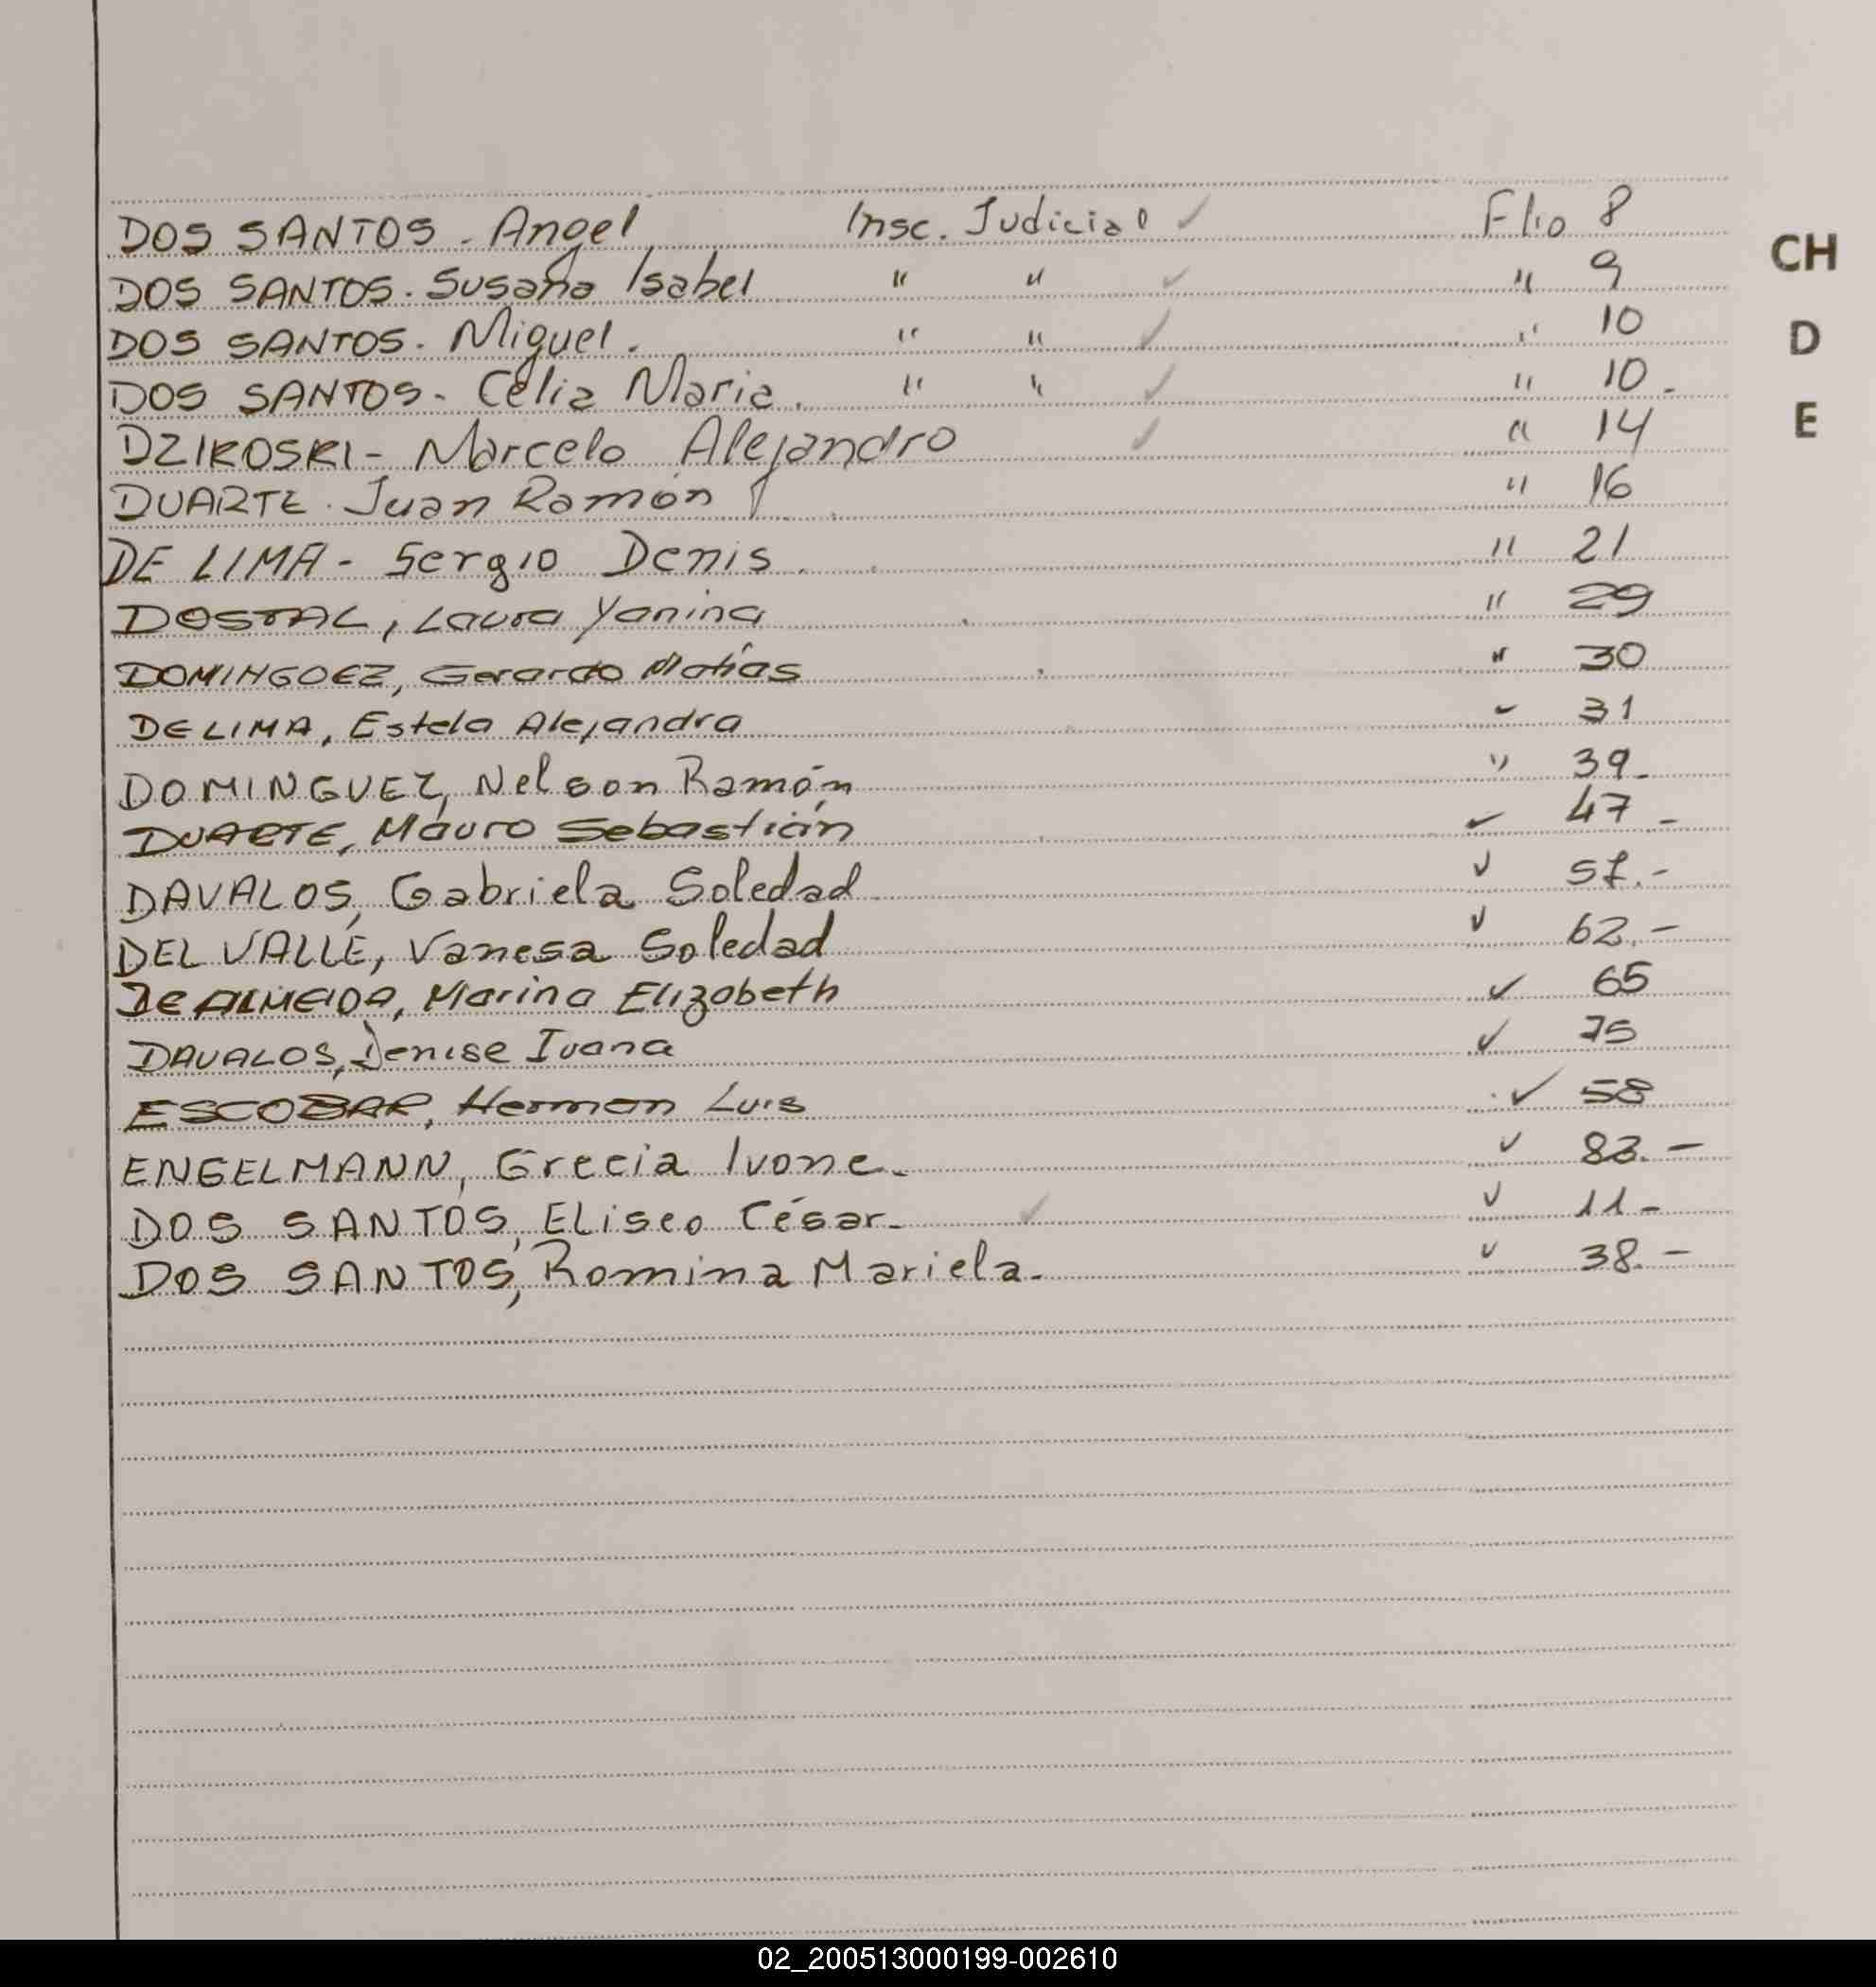 DOS SANTOS - Angel Insc. Judicial ✓ Flio 8
DOS SANTOS. Susana Isabel " " ✓ " 9
DOS SANTOS. Miguel. " " ✓ " 10
DOS SANTOS - Celia Maria. " " ✓ " 10.
DZIKOSKI - Marcelo Alejandro ✓ " 14
DUARTE. Juan Ramón " 16
DE LIMA - Sergio Denis. " 21
DOSTAL, Laura Yanina " 29
DOMINGOEZ, Gerardo Matías " 30
DE LIMA, Estela Alejandra " 31
DOMINGUEZ, Nelson Ramón " 39-
DUARTE, Mauro Sebastián ✓ 47-
DAVALOS, Gabriela Soledad ✓
DEL VALLE, Vanesa Soledad ✓ 62.-
De ALMEIDA, Marina Elizabeth ✓ 65
DAVALOS, Denise Ivana ✓ 75
ESCOBAR, Hernan Luis ✓ 58
ENGELMANN, Grecia Ivone. ✓ 83.-
DOS SANTOS, Eliseo César- ✓ ✓ 11-
DOS SANTOS, Romina Mariela. ✓ 38.-
CH
D
E
02_200513000199-002610